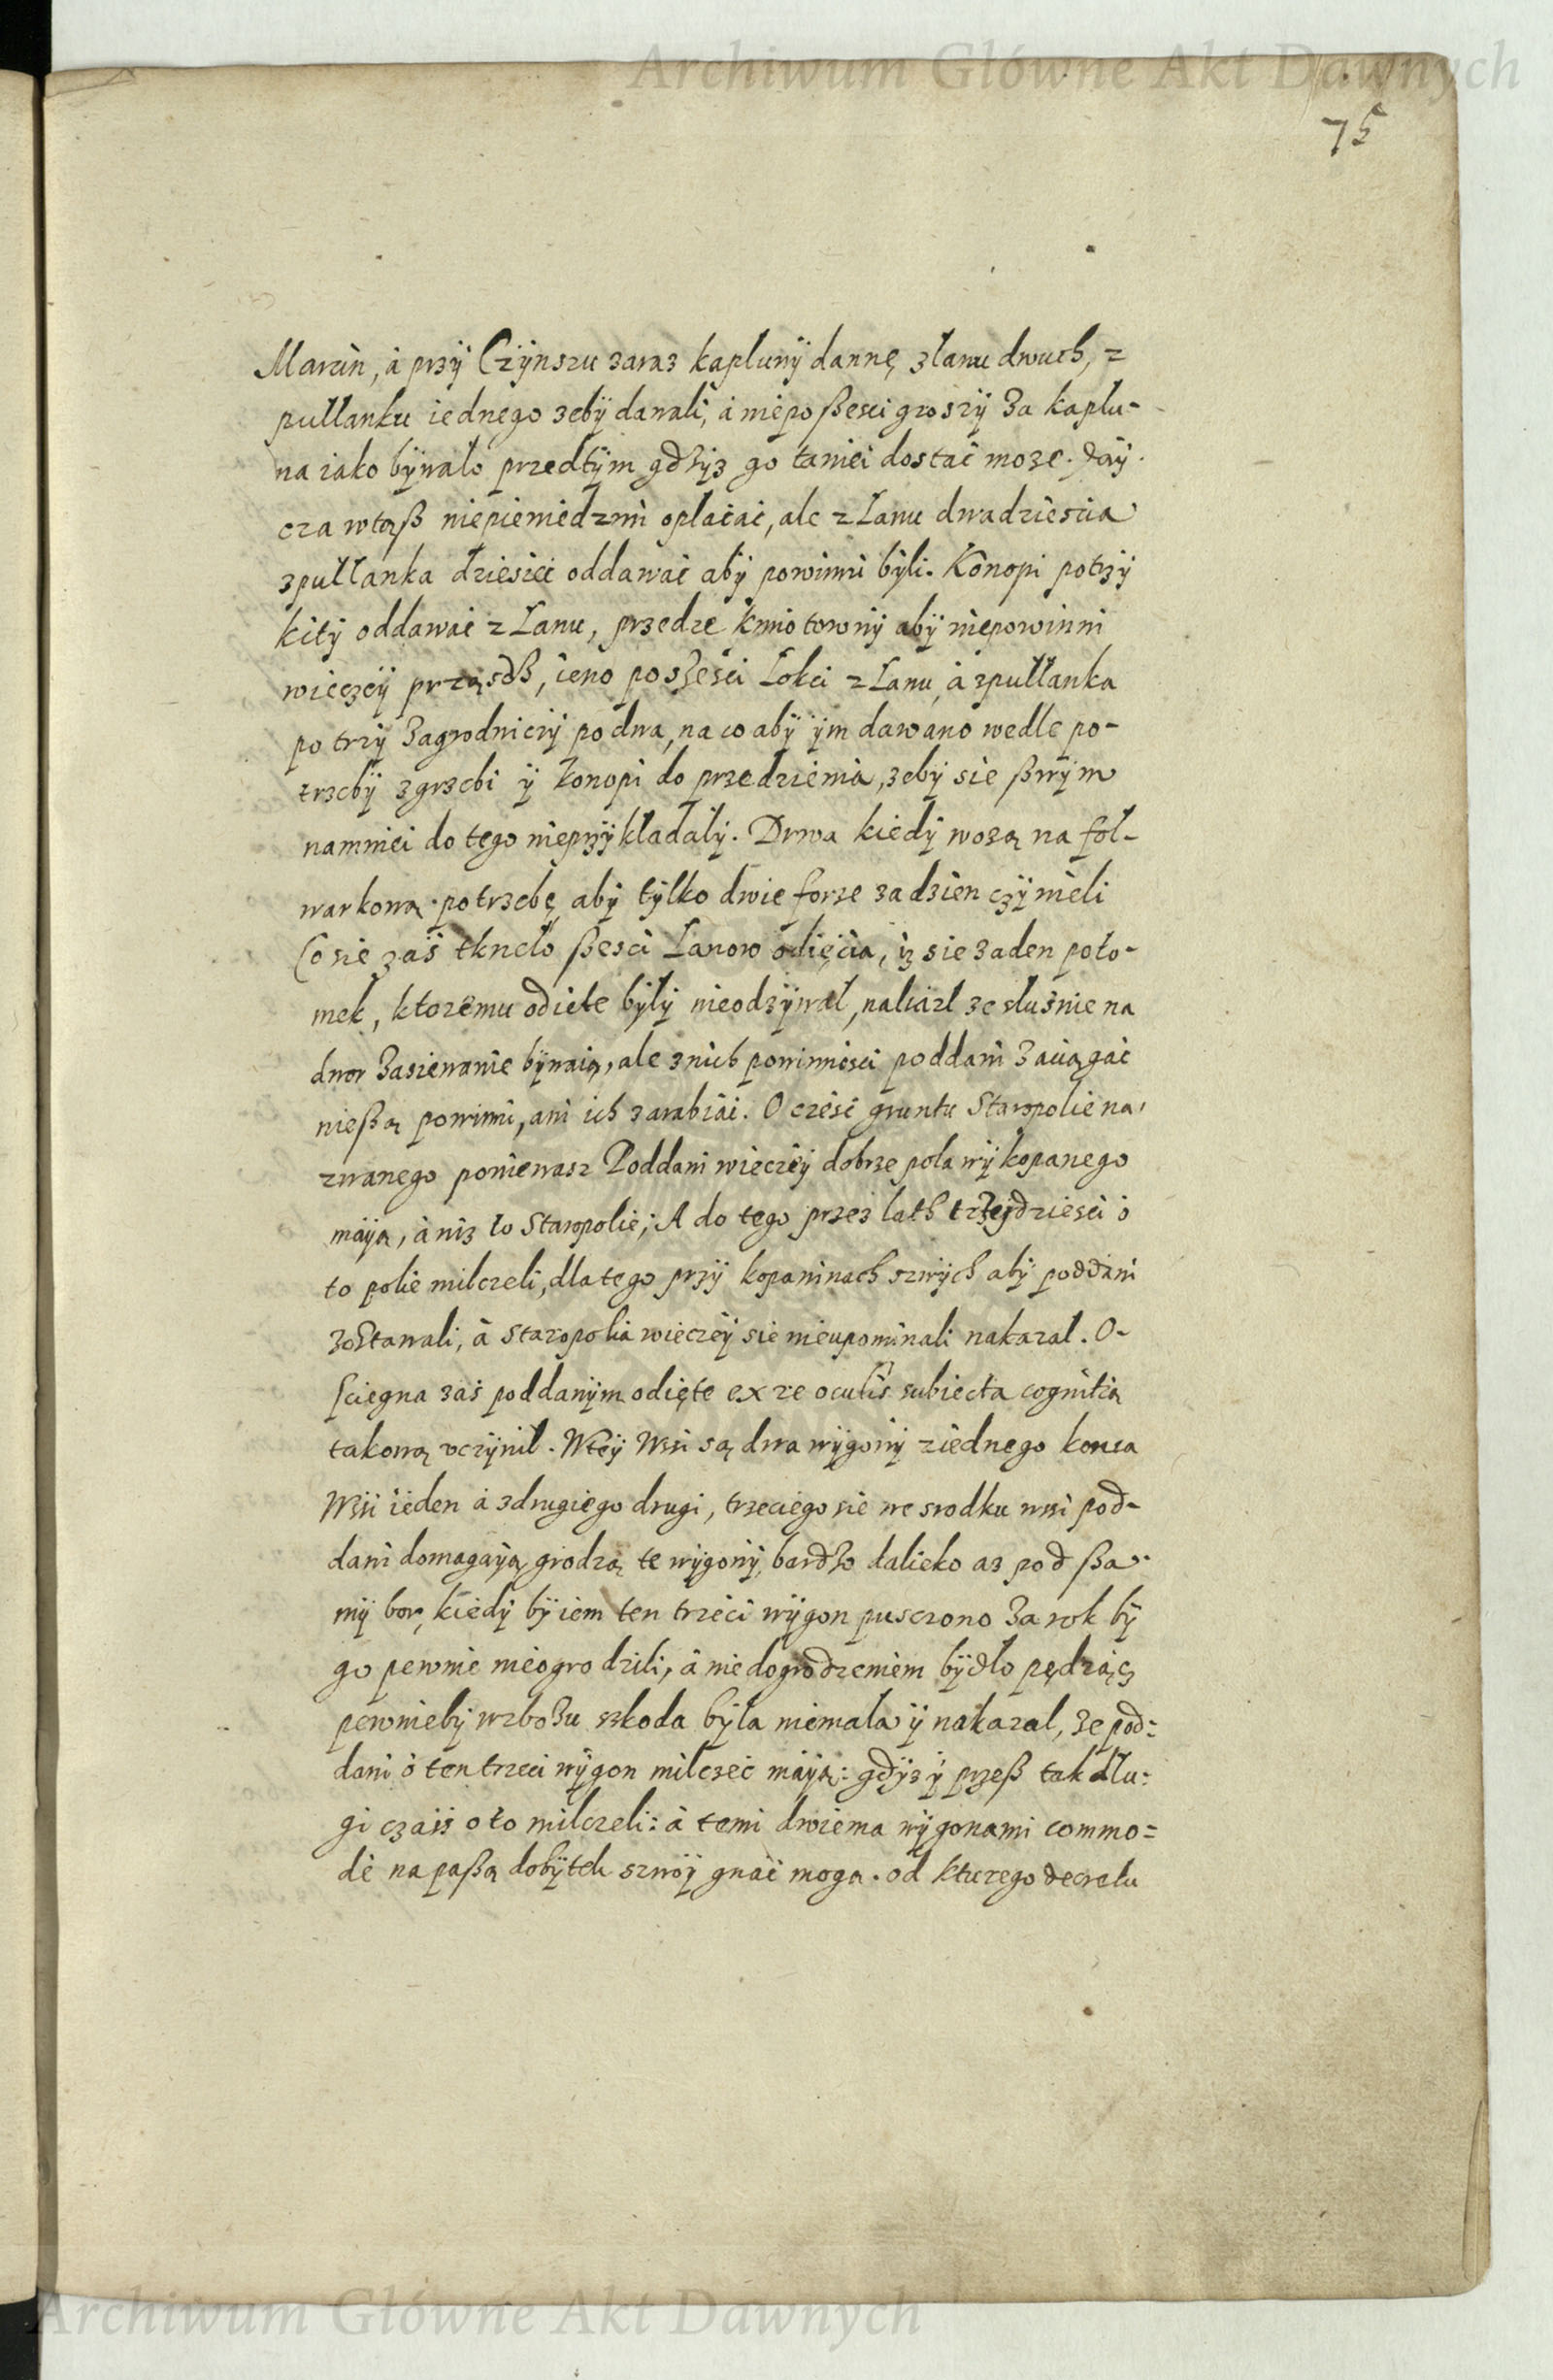 Archiwum Główne Akt Dawnych
75
Marcin, à przÿ Czÿnszu zaraz kapłunÿ dannę złanu dwuch, z
pułłanku iednego zebÿ dawali, à niepo ßesci groszÿ za kapłu-
na iako bÿwało przedtÿm gdzÿz go taniei dostać moze. Jaÿ-
cza wtesz niepieniedzmi opłacać, ale z Łanu dwadziescia
zpułłanka dziesieć oddawać abÿ powinni bÿli. Konopi potrzÿ
kitÿ oddawać z Łanu, przedze kmiotownÿ abÿ niepowinni
wieczeÿ prząsdź, ieno poszesci Łokci z Łanu, à zpułłanka
po trzÿ zagrodniczÿ po dwa, na co abÿ ÿm dawano wedle po-
trzebÿ zgrzebi ÿ konopi do przedzienia, zebÿ sie ßwÿm
namniei do tego nieprzÿkładałÿ. Drwa kiedÿ wozą na fol-
warkową potrzebę abÿ tÿlko dwie forze za dzien czÿnieli
Co sie zaś tkneło ßesci Łanow odięcia, iz sie zaden poto-
mek, ktoremu odiete bÿłÿ nieodzÿwał, nalazł ze słusnie na
dwor zasiewanie bÿwaią, ale znich powinnosci poddani zaciągać
nießą powinni, ani ich zarabiać. O czesc gruntu Staropolie na-
zwanego poniewasz Poddani wieczeÿ dobrze pola wÿkopanego
maÿą, à niz to Staropolie; A do tego przez lath trzÿdziesci ò
to polie milczeli, dlatego przÿ kopaninach szwÿch abÿ poddani
zostawali, à staropolia wieczeÿ sie nieupominali nakazal. O-
sciegna zaś poddanÿm odięte ex re oculis subiecta cognitią
takową vczÿnił. Wteÿ Wsi są dwa wÿgonÿ ziednego konca
Wsii ieden à zdrugiego drugi, trzeciego sie we srodku wsi pod-
dani domagaÿą grodzą te wÿgonÿ bardzo dalieko az pod ßa-
mÿ bor, kiedÿ bÿ iem ten trzeci wÿgon pusczono za rok bÿ
go pewnie nieogrodzili, à niedogrodzeniem bÿdło pędząc
pewniebÿ wzbozu szkoda bÿła niemała ÿ nakazal, ze pod-
dani ò ten trzeci wÿgon milczeć maÿą: gdÿz ÿ przeß tak dłu-
gi czaß o to milczeli: à temi dwiema wÿgonami commo-
dè na paßą dobÿtek szwóÿ gnać mogą. od kturego decretu
Archiwum Główne Akt Dawnych